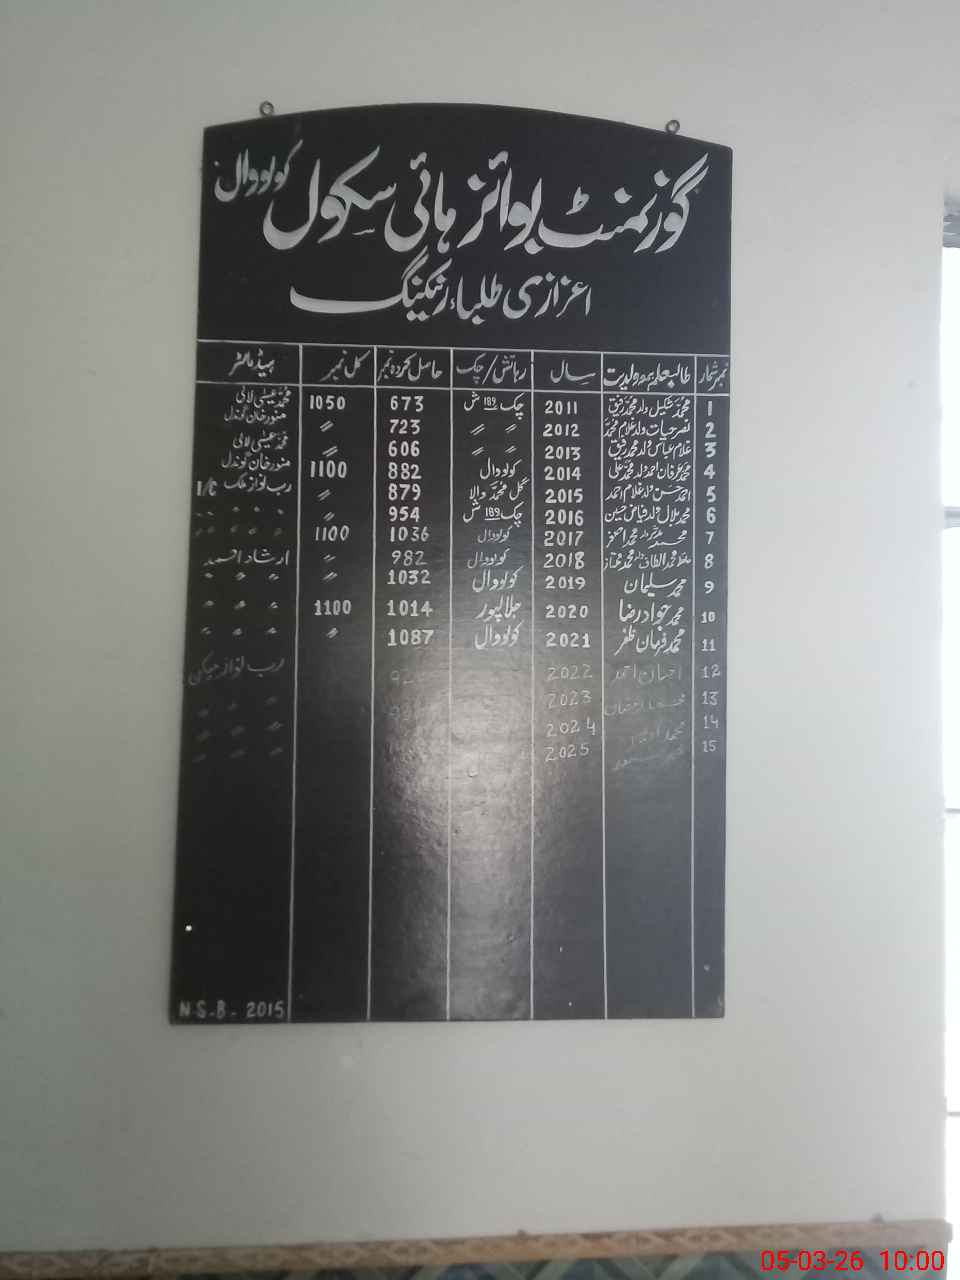 گورنمنٹ بوائز ہائی سکول کولووال
اعزازی طلباء رینکینگ
نمبر شمار طالبعلم بمعہ ولدیت سال رہائش/چک حاصل کردہ نمبر کل نمبر ہیڈ ماسٹر
1 محمد شکیل ولد محمد رفیق 2011 چک 189 ش 673 1050 محمد عیسیٰ لالی
2 نصر حیات ولد غلام محمد 2012 〃 〃 723 〃 منور خان گوندل
3 غلام عباس ولد محمد رفیق 2013 〃 〃 606 〃 محمد عیسیٰ لالی
4 محمد عرفان احمد ولد محمد علی 2014 کولووال 882 1100 منور خان گوندل
5 احمد حسن ولد غلام احمد 2015 گل محمد والا 879 〃 رب نواز ملک
6 محمد بلال ولد فیاض حسین 2016 چک 189 ش 954 〃 〃 〃 〃
7 محمد مدثر ولد محمد اصغر 2017 کولووال 1036 1100 〃 〃 〃
8 حافظ محمد الطاف ولد محمد ممتاز 2018 کولووال 982 〃 ارشاد احمد
9 محمد سلیمان 2019 کولووال 1032 〃
10 محمد جواد رضا 2020 جلالپور 1014 1100 〃 〃 〃
11 محمد فرمان ظفر 2021 کولووال 1087 〃 〃 〃 〃
12 احسان احمد 2022 رب نواز
13 2023 〃 〃 〃
14 محمد 2024 〃 〃 〃
15 2025 〃 〃 〃
N.S.B. 2015
05-03-26 10:00